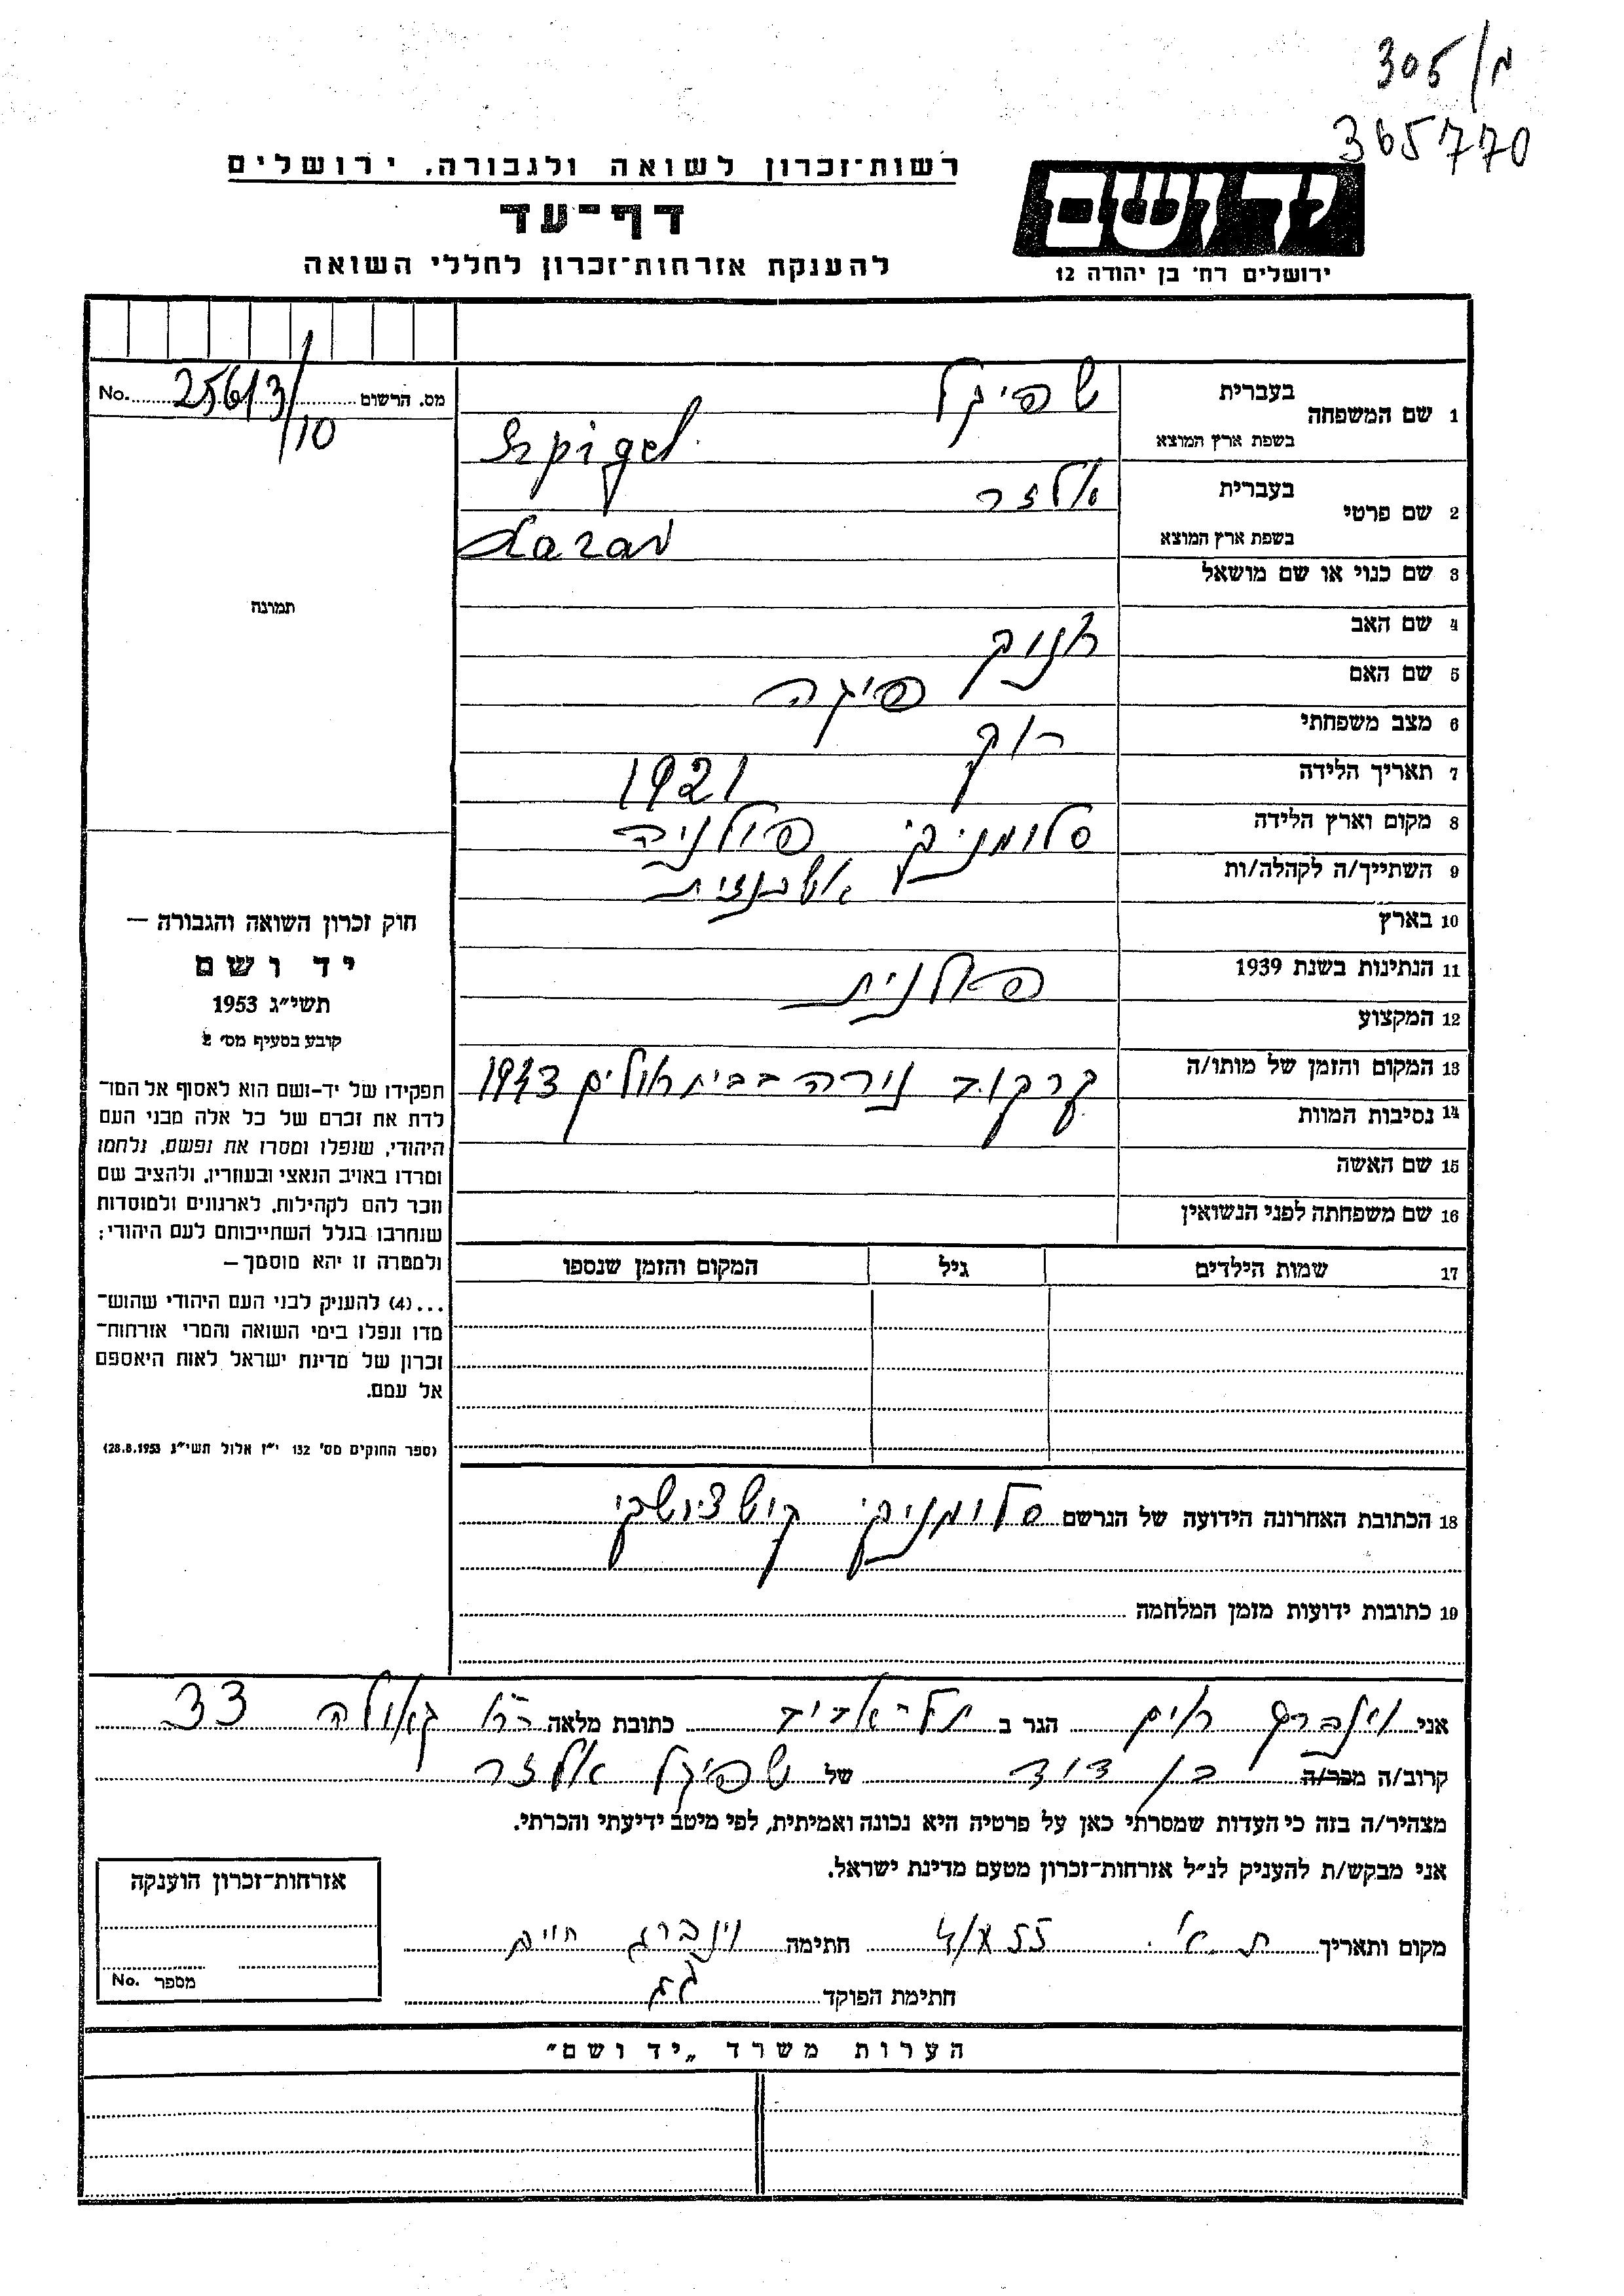 305/מ
365770
רשות־זכרון לשואה ולגבורה, ירושלים
דף־עד
להענקת אזרחות־זכרון לחללי השואה
ידושם
ירושלים רח׳ בן יהודה 12
מס. הרשום 25613/10 No.
תמונה
1 שם המשפחה בעברית שפיגל
בשפת ארץ המוצא Szpigel
2 שם פרטי בעברית אלזר
בשפת ארץ המוצא Lazar
3 שם כנוי או שם מושאל
4 שם האב חנוך
5 שם האם פיגה
6 מצב משפחתי רוק
7 תאריך הלידה 1921
8 מקום וארץ הלידה סלומניקי פולניה
9 השתייך/ה לקהלה/ות אשכנזית
10 בארץ
11 הנתינות בשנת 1939 פאלנית
12 המקצוע
13 המקום והזמן של מותו/ה קרקוב נורה בבית אולים 1943
14 נסיבות המוות
15 שם האשה
16 שם משפחתה לפני הנשואין
17 שמות הילדים גיל המקום והזמן שנספו
חוק זכרון השואה והגבורה —
יד ושם
תשי״ג 1953
קובע בסעיף מס׳ 2
תפקידו של יד-ושם הוא לאסוף אל המו־
לדת את זכרם של כל אלה מבני העם
היהודי, שנפלו ומסרו את נפשם, נלחמו
ומרדו באויב הנאצי ובעוזריו, ולהציב שם
וזכר להם לקהילות, לארגונים ולמוסדות
שנחרבו בגלל השתייכותם לעם היהודי;
ולמטרה זו יהא מוסמך —
...(4) להעניק לבני העם היהודי שהוש־
מדו ונפלו בימי השואה והמרי אזרחות־
זכרון של מדינת ישראל לאות היאספם
אל עמם.
(ספר החוקים מס׳ 132 י״ז אלול תשי״ג 28.8.1953)
18 הכתובת האחרונה הידועה של הנרשם סלומניקי קושצושקי
19 כתובות ידועות מזמן המלחמה
אני וינברג חים הגר ב תל-אביב כתובת מלאה רח גאולה 33
קרוב/ה מכר/ה בן דוד של שפיגל אלזר
מצהיר/ה בזה כי העדות שמסרתי כאן על פרטיה היא נכונה ואמיתית, לפי מיטב ידיעתי והכרתי.
אני מבקש/ת להעניק לנ״ל אזרחות־זכרון מטעם מדינת ישראל.
מקום ותאריך ת.א. 4/X 55 חתימה וינברג חיים
חתימת הפוקד
אזרחות־זכרון הוענקה
מספר No.
הערות משרד „יד ושם״